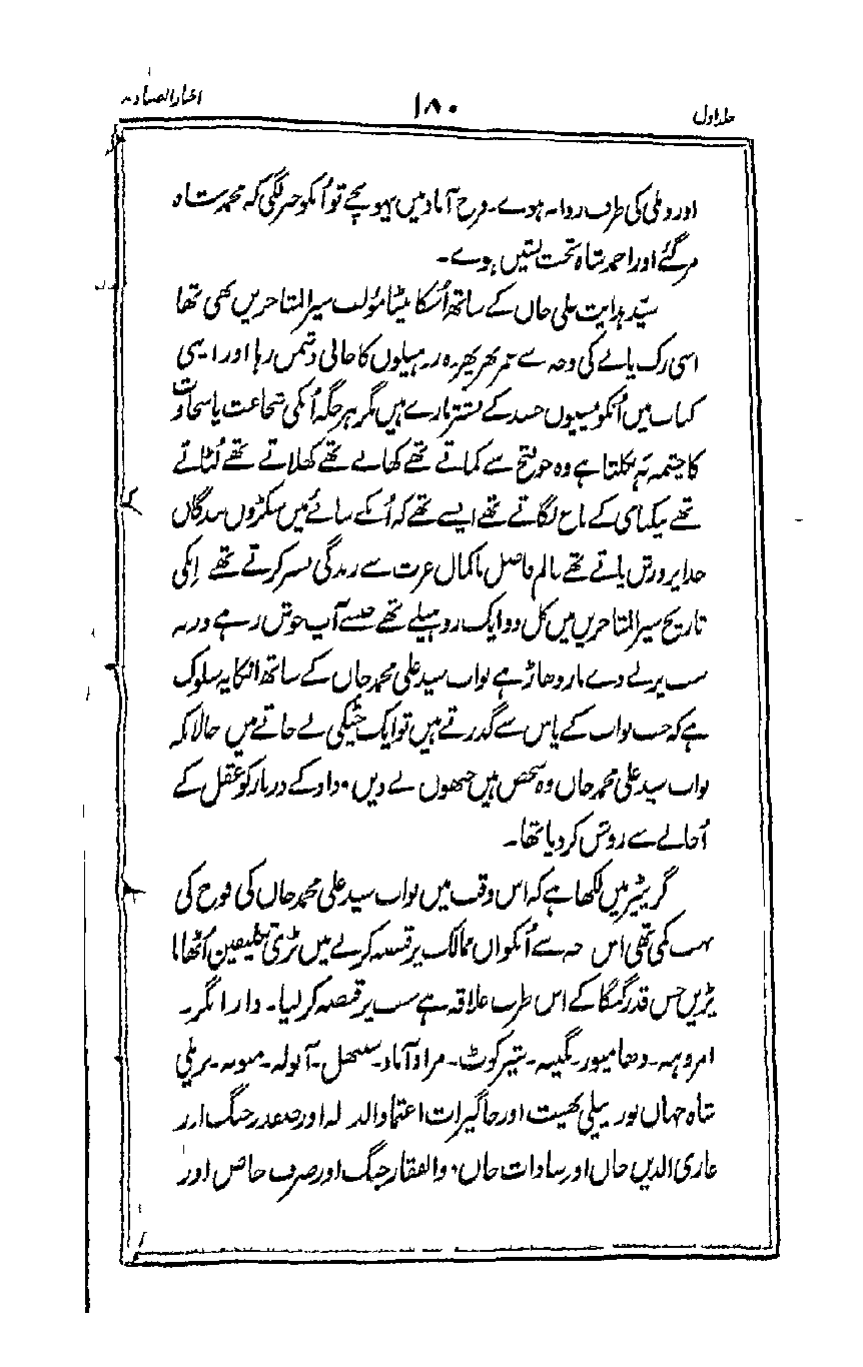 جلد اول ۱۸۰ اخبار الصنادید
اور دہلی کی طرف روانہ ہوے۔ فرح آباد میں پہونچے تو اُنکو خبر لگی کہ محمد شاہ
مر گئے اور احمد شاہ تخت نشیں ہوے۔
سیّد ہدایت علی خاں کے ساتھ اُسکا بیٹا مؤلف سیر المتاخرین بھی تھا
اسی زک پانے کی وجہ سے عمر بھر بھر وہ روہیلوں کا جانی دشمن رہا اور اپنی
کتاب میں اُنکو بیسیوں حسد کے نشتر مارے ہیں مگر ہر جگہ اُنکی شجاعت یا سخاوت
کا چشمہ بہ نکلتا ہے وہ جو تیغ سے کماتے تھے کھاتے تھے کھلاتے تھے لُٹاتے
تھے نیکنامی کے باغ لگاتے تھے ایسے تھے کہ اُنکے سائے میں سیکڑوں بندگان
خدا پرورش پاتے تھے عالم فاضل باکمال عزت سے زندگی بسر کرتے تھے اِنکی
تاریخ سیر المتاخرین میں کل دو ایک روہیلے تھے جنسے آپ خوش رہے ورنہ
سب پر لے دے مار دھاڑ ہے نواب سید علی محمد خاں کے ساتھ انکا یہ سلوک
ہے کہ جب نواب کے پاس سے گذرتے ہیں تو ایک چٹکی لے جاتے ہیں حالانکہ
نواب سید علی محمد خاں وہ شخص ہیں جنھوں نے دین و داد کے دربار کو عقل کے
اُجالے سے روشن کر دیا تھا۔
گزیٹیر میں لکھا ہے کہ اس وقت میں نواب سید علی محمد خاں کی فوج کی
بہت کمی تھی اس وجہ سے اُنکو ان ممالک پر قبضہ کرنے میں بڑی تکلیفین اُٹھانا
پڑیں جس قدر گنگا کے اس طرف علاقہ ہے سب پر قبضہ کر لیا۔ دارا نگر۔
امروہہ۔ دھامپور۔ نگینہ۔ شیرکوٹ۔ مراد آباد۔ سنبھل۔ آنولہ۔ منونہ۔ بریلی
شاہ جہاں پور پیلی بھیت اور جاگیرات اعتماد الدولہ اور صفدر جنگ اور
غازی الدین خاں اور سادات خاں ذوالفقار جنگ اور صرف خاص اور